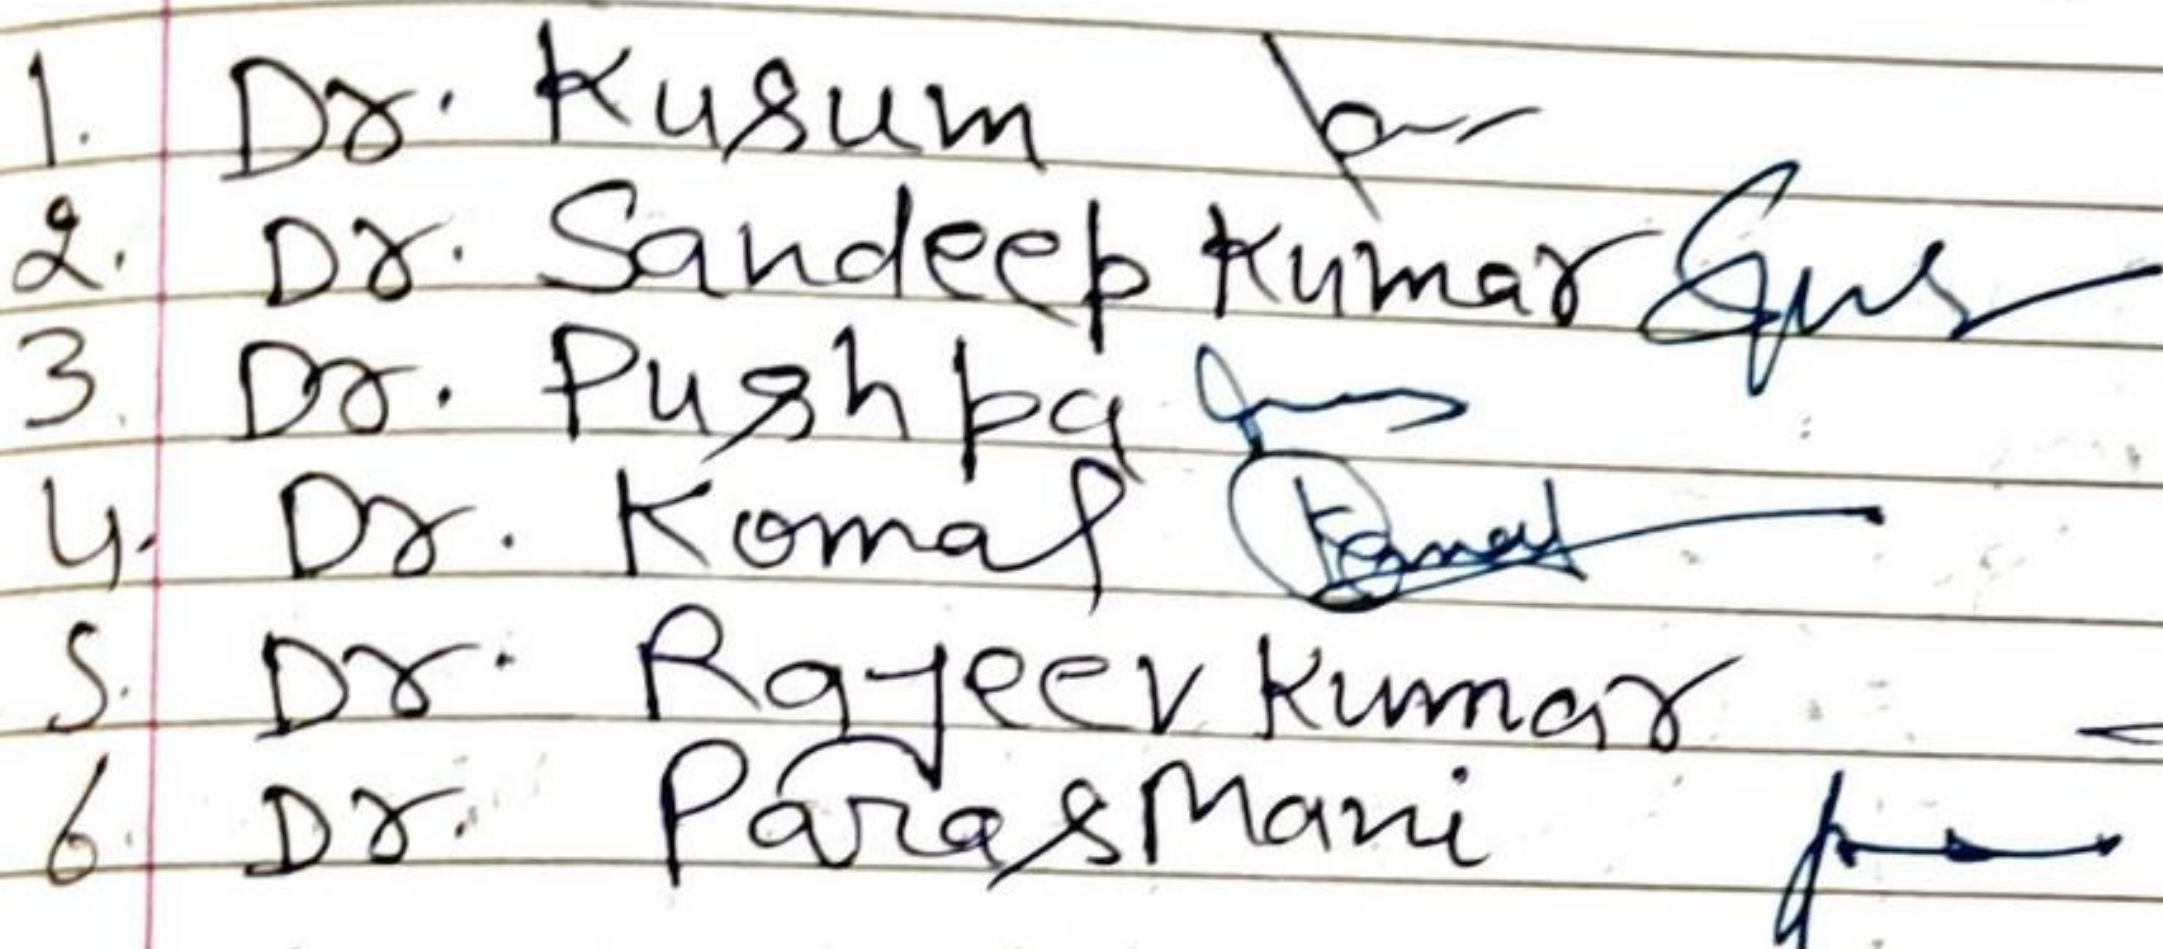 1. Dr. Kusum
2. Dr. Sandeep Kumar
3. Dr. Pushpa
4. Dr. Komal Komal
5. Dr. Rajeev Kumar
6. Dr. Paras Mani